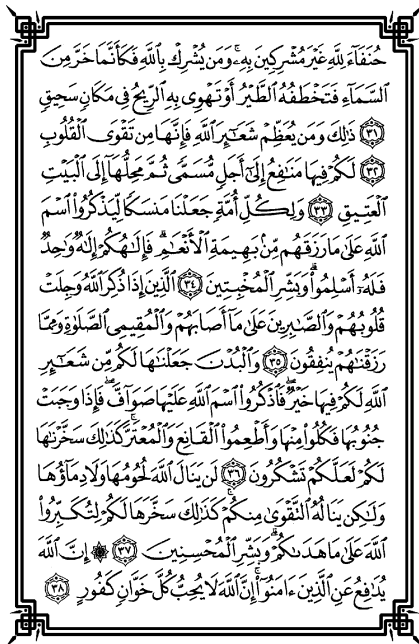 حُنَفَآءَ لِلَّهِ غَيْرَ مُشْرِكِينَ بِهِۦۚ وَمَن يُشْرِكْ بِٱللَّهِ فَكَأَنَّمَا خَرَّ مِنَ
ٱلسَّمَآءِ فَتَخْطَفُهُ ٱلطَّيْرُ أَوْ تَهْوِى بِهِ ٱلرِّيحُ فِى مَكَانٍ سَحِيقٍ
﴿٣١﴾ ذَٰلِكَ وَمَن يُعَظِّمْ شَعَـٰٓئِرَ ٱللَّهِ فَإِنَّهَا مِن تَقْوَى ٱلْقُلُوبِ
﴿٣٢﴾ لَكُمْ فِيهَا مَنَـٰفِعُ إِلَىٰٓ أَجَلٍ مُّسَمًّى ثُمَّ مَحِلُّهَآ إِلَى ٱلْبَيْتِ
ٱلْعَتِيقِ ﴿٣٣﴾ وَلِكُلِّ أُمَّةٍ جَعَلْنَا مَنسَكًا لِّيَذْكُرُوا۟ ٱسْمَ
ٱللَّهِ عَلَىٰ مَا رَزَقَهُم مِّنۢ بَهِيمَةِ ٱلْأَنْعَـٰمِۗ فَإِلَـٰهُكُمْ إِلَـٰهٌ وَٰحِدٌ
فَلَهُۥٓ أَسْلِمُوا۟ۗ وَبَشِّرِ ٱلْمُخْبِتِينَ ﴿٣٤﴾ ٱلَّذِينَ إِذَا ذُكِرَ ٱللَّهُ وَجِلَتْ
قُلُوبُهُمْ وَٱلصَّـٰبِرِينَ عَلَىٰ مَآ أَصَابَهُمْ وَٱلْمُقِيمِى ٱلصَّلَوٰةِ وَمِمَّا
رَزَقْنَـٰهُمْ يُنفِقُونَ ﴿٣٥﴾ وَٱلْبُدْنَ جَعَلْنَـٰهَا لَكُم مِّن شَعَـٰٓئِرِ
ٱللَّهِ لَكُمْ فِيهَا خَيْرٌۖ فَٱذْكُرُوا۟ ٱسْمَ ٱللَّهِ عَلَيْهَا صَوَآفَّۖ فَإِذَا وَجَبَتْ
جُنُوبُهَا فَكُلُوا۟ مِنْهَا وَأَطْعِمُوا۟ ٱلْقَانِعَ وَٱلْمُعْتَرَّۚ كَذَٰلِكَ سَخَّرْنَـٰهَا
لَكُمْ لَعَلَّكُمْ تَشْكُرُونَ ﴿٣٦﴾ لَن يَنَالَ ٱللَّهَ لُحُومُهَا وَلَا دِمَآؤُهَا
وَلَـٰكِن يَنَالُهُ ٱلتَّقْوَىٰ مِنكُمْۚ كَذَٰلِكَ سَخَّرَهَا لَكُمْ لِتُكَبِّرُوا۟
ٱللَّهَ عَلَىٰ مَا هَدَىٰكُمْۗ وَبَشِّرِ ٱلْمُحْسِنِينَ ﴿٣٧﴾ ۞ إِنَّ ٱللَّهَ
يُدَٰفِعُ عَنِ ٱلَّذِينَ ءَامَنُوٓا۟ۗ إِنَّ ٱللَّهَ لَا يُحِبُّ كُلَّ خَوَّانٍ كَفُورٍ ﴿٣٨﴾